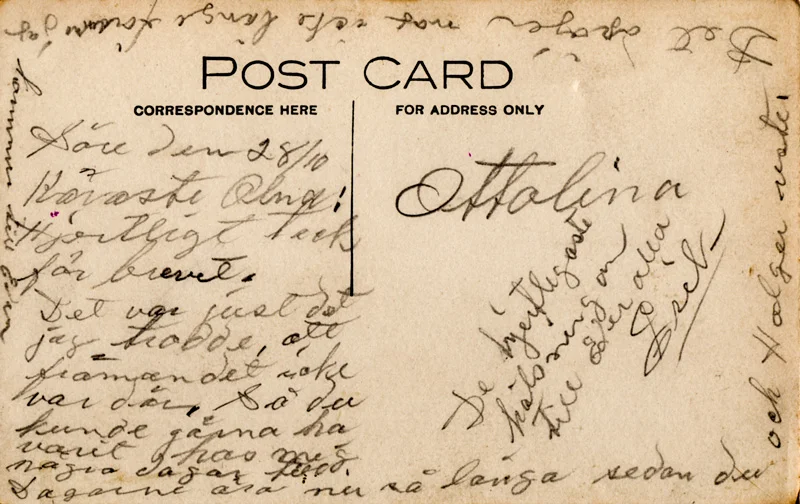 POST CARD
CORRESPONDENCE HERE
FOR ADDRESS ONLY
Säre den 28/10
Käraste Alma!
Hjertligt tack
för brevet.
Det var just det
jag trodde, att
främandet icke
var där. Så du
kunde gärna ha
varit hos mig
några dagar
Dagarne äro nu så långa sedan du
och Holger reste.
Det dröjer nog icke länge förrän jag
kommer till
Ottolina
De hjertligaste
hälsningar
till eder alla
Erik